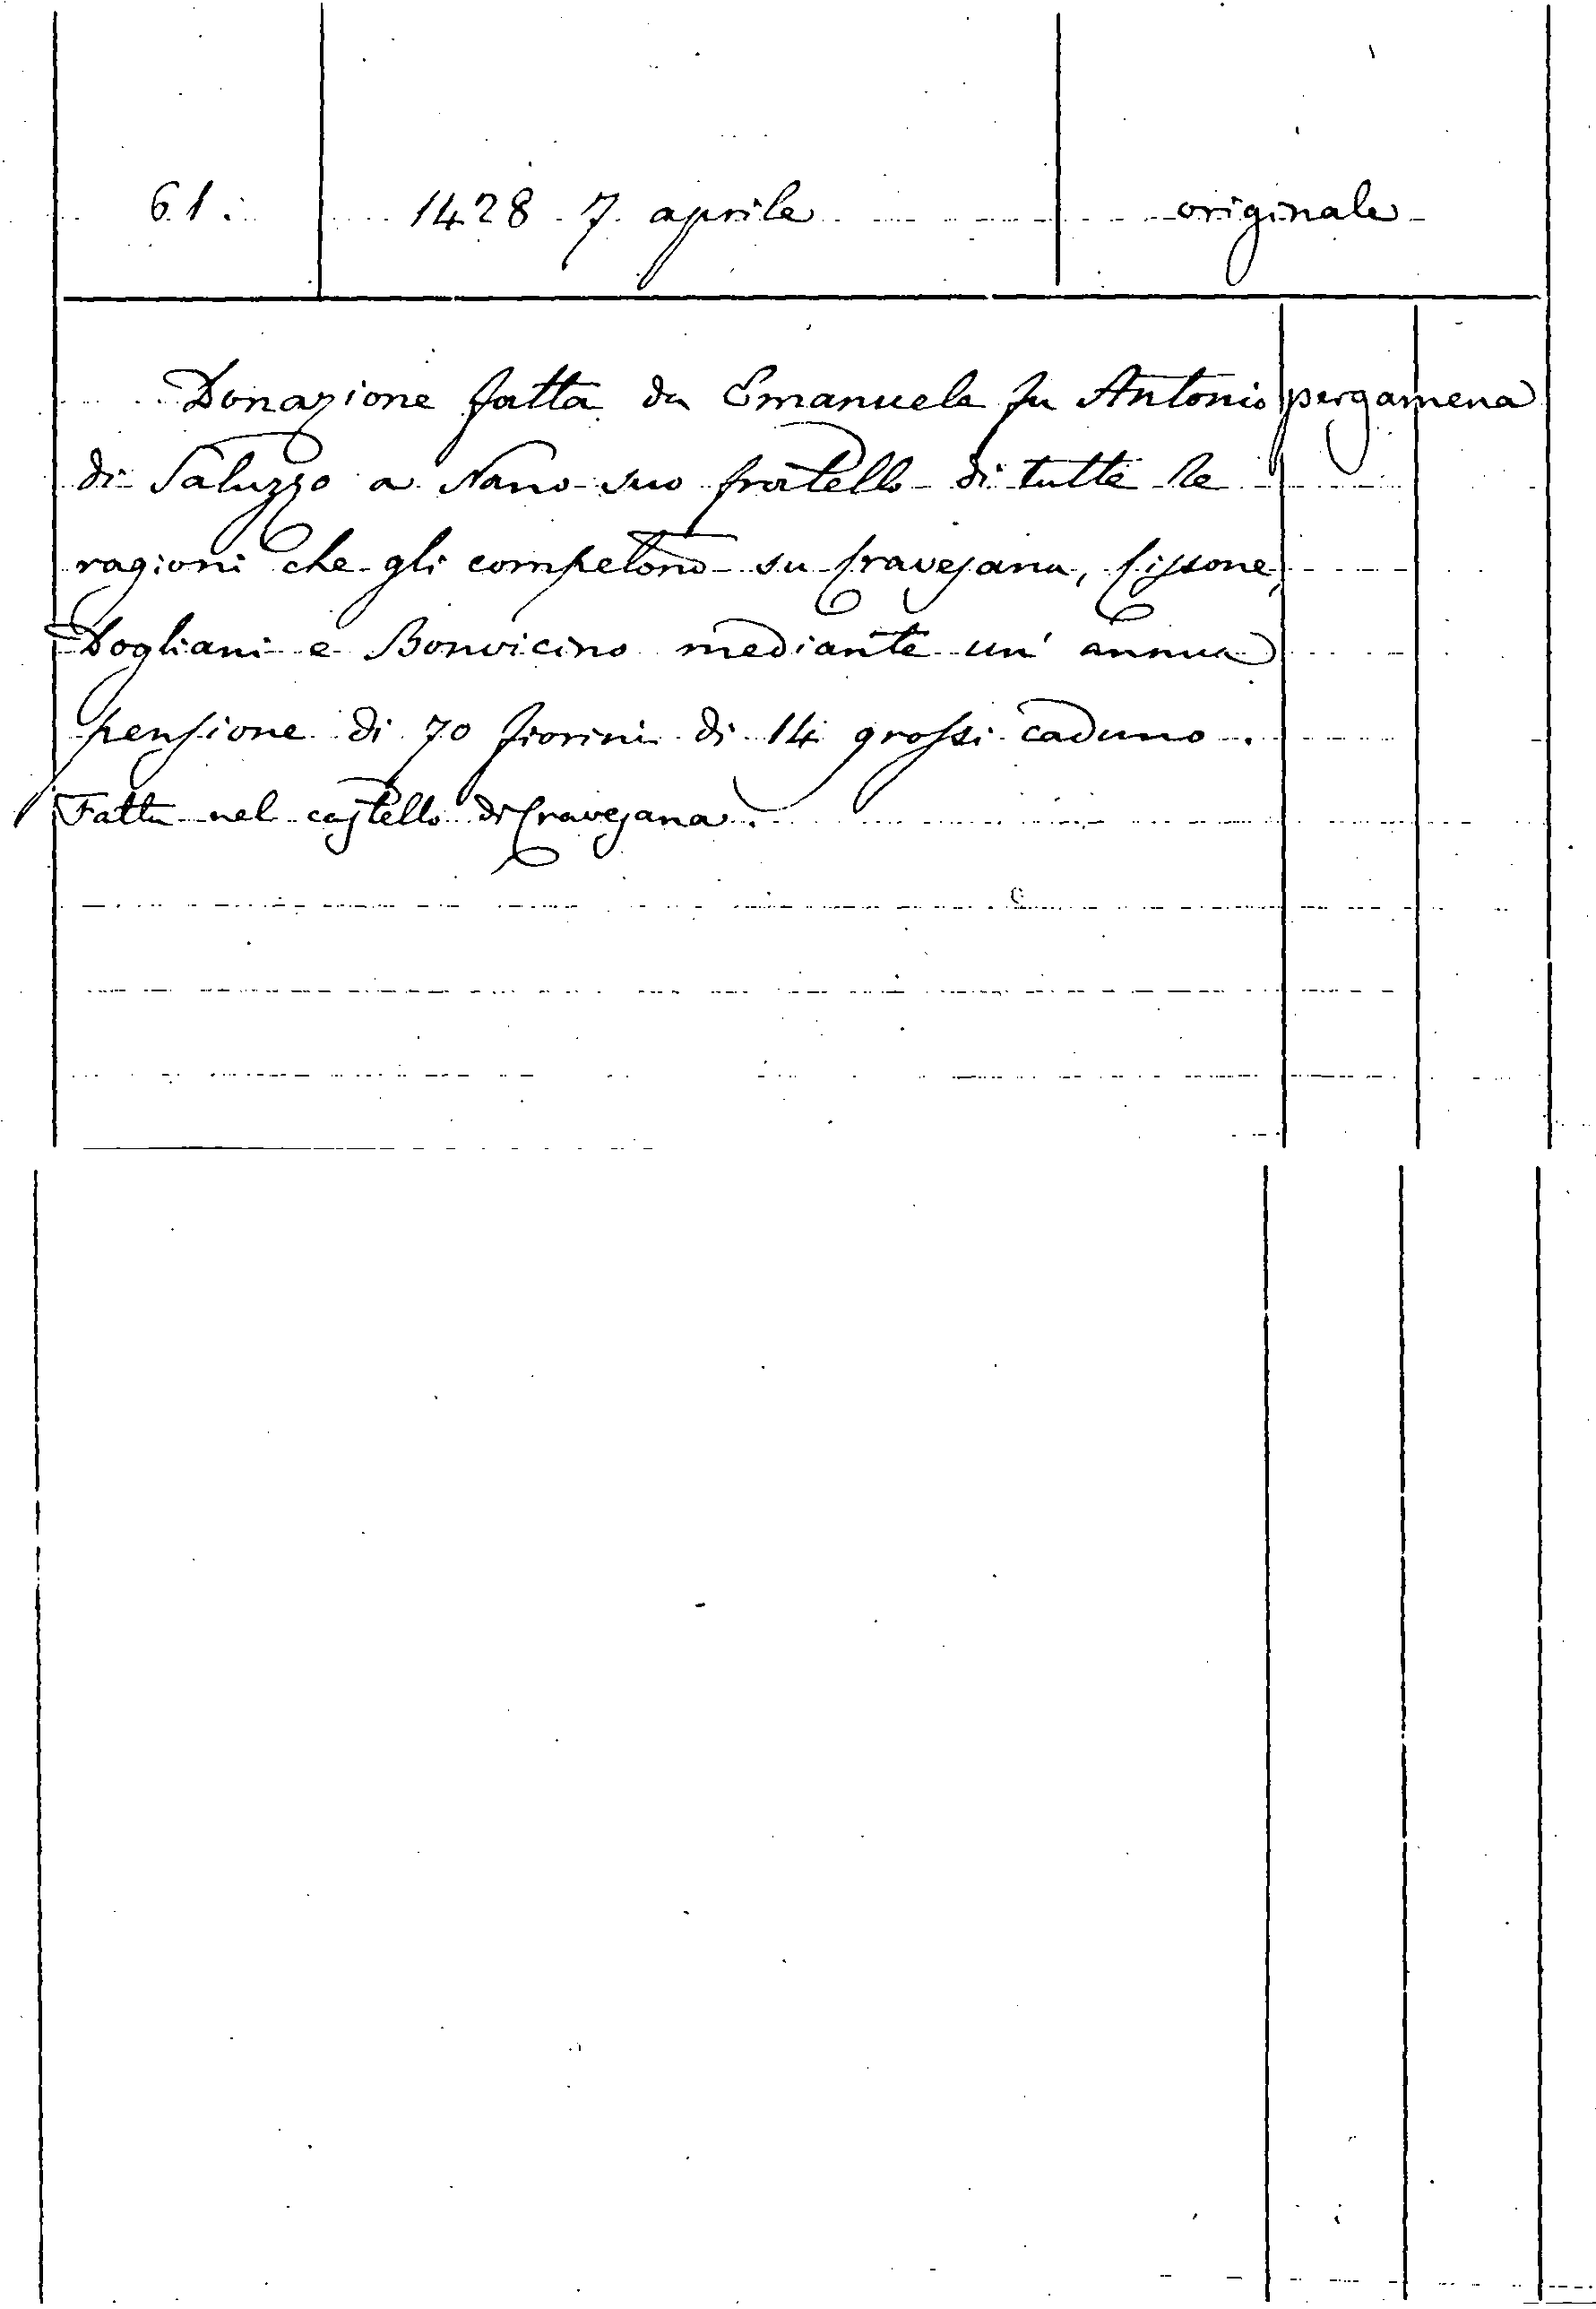 61. 1428 7 aprile originale
Donazione fatta da Emanuele fu Antonio pergamena
di Saluzzo a Nano suo fratello di tutte le
ragioni che gli competono su Cravesana, Cissone,
Dogliani e Bonvicino mediante un' annua
pensione di 70 fiorini di 14 grossi caduno.
Fatta nel castello di Cravesana.